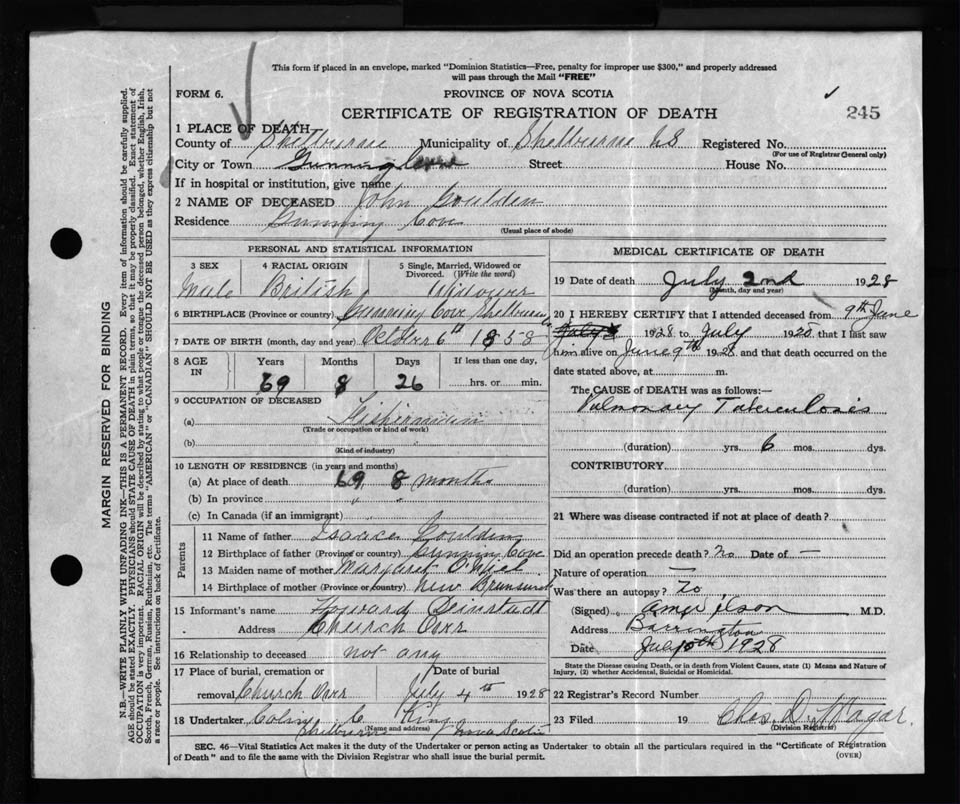 This form if placed in an envelope, marked "Dominion Statistics—Free, penalty for improper use $300," and properly addressed
will pass through the Mail "FREE"
FORM 6.
PROVINCE OF NOVA SCOTIA
CERTIFICATE OF REGISTRATION OF DEATH
245
1 PLACE OF DEATH
County of Shelburne Municipality of Shelburne NS Registered No.
(For use of Registrar General only)
City or Town Gunning Cove Street House No.
If in hospital or institution, give name
2 NAME OF DECEASED John Goulden
Residence Gunning Cove
(Usual place of abode)
PERSONAL AND STATISTICAL INFORMATION
3 SEX 4 RACIAL ORIGIN 5 Single, Married, Widowed or Divorced. (Write the word)
Male British Widower
6 BIRTHPLACE (Province or country) Gunning Cove Shelburne
7 DATE OF BIRTH (month, day and year) October 6th 1853
8 AGE IN Years Months Days If less than one day,
69 8 26 hrs. or min.
9 OCCUPATION OF DECEASED
(a) Fisherman
(Trade or occupation or kind of work)
(b)
(Kind of industry)
10 LENGTH OF RESIDENCE (in years and months)
(a) At place of death 69 8 months
(b) In province " "
(c) In Canada (if an immigrant) "
Parents
11 Name of father Isaac Goulding
12 Birthplace of father (Province or country) Gunning Cove
13 Maiden name of mother Margaret O'Niel
14 Birthplace of mother (Province or country) New Brunswick
15 Informant's name
Address Church Over
16 Relationship to deceased not any
17 Place of burial, cremation or Date of burial
removal Church Over July 4th 1928
18 Undertaker Colin C. King
(Name and address)
Shelburne Nova Scotia
MEDICAL CERTIFICATE OF DEATH
19 Date of death July 2nd 1928
(Month, day and year)
20 I HEREBY CERTIFY that I attended deceased from 9th June
July 1928 to July 1928 that I last saw
him alive on June 9th 1928 and that death occurred on the
date stated above, at m.
The CAUSE OF DEATH was as follows:—
Pulmonary Tuberculosis
(duration) yrs. 6 mos. dys.
CONTRIBUTORY
(duration) yrs. mos. dys.
21 Where was disease contracted if not at place of death?
Did an operation precede death? No Date of —
Nature of operation —
Was there an autopsy? No
(Signed) M.D.
Address Barrington
Date July 10th 1928
State the Disease causing Death, or in death from Violent Causes, state (1) Means and Nature of
Injury, (2) whether Accidental, Suicidal or Homicidal.
22 Registrar's Record Number
23 Filed 19 Chas. D. Hagar.
(Division Registrar)
SEC. 46—Vital Statistics Act makes it the duty of the Undertaker or person acting as Undertaker to obtain all the particulars required in the "Certificate of Registration
of Death" and to file the same with the Division Registrar who shall issue the burial permit.
(OVER)
MARGIN RESERVED FOR BINDING
N.B.—WRITE PLAINLY WITH UNFADING INK—THIS IS A PERMANENT RECORD. Every item of information should be carefully supplied.
AGE should be stated EXACTLY. PHYSICIANS should STATE CAUSE OF DEATH in plain terms, so that it may be properly classified. Exact statement of
OCCUPATION is very important. RACIAL ORIGIN will be described by stating to what people or tongue the deceased person belonged, whether English, Irish,
Scotch, French, German, Russian, Ruthenian, etc. The terms "AMERICAN" or "CANADIAN" SHOULD NOT BE USED as they express citizenship but not
a race or people. See instructions on back of Certificate.